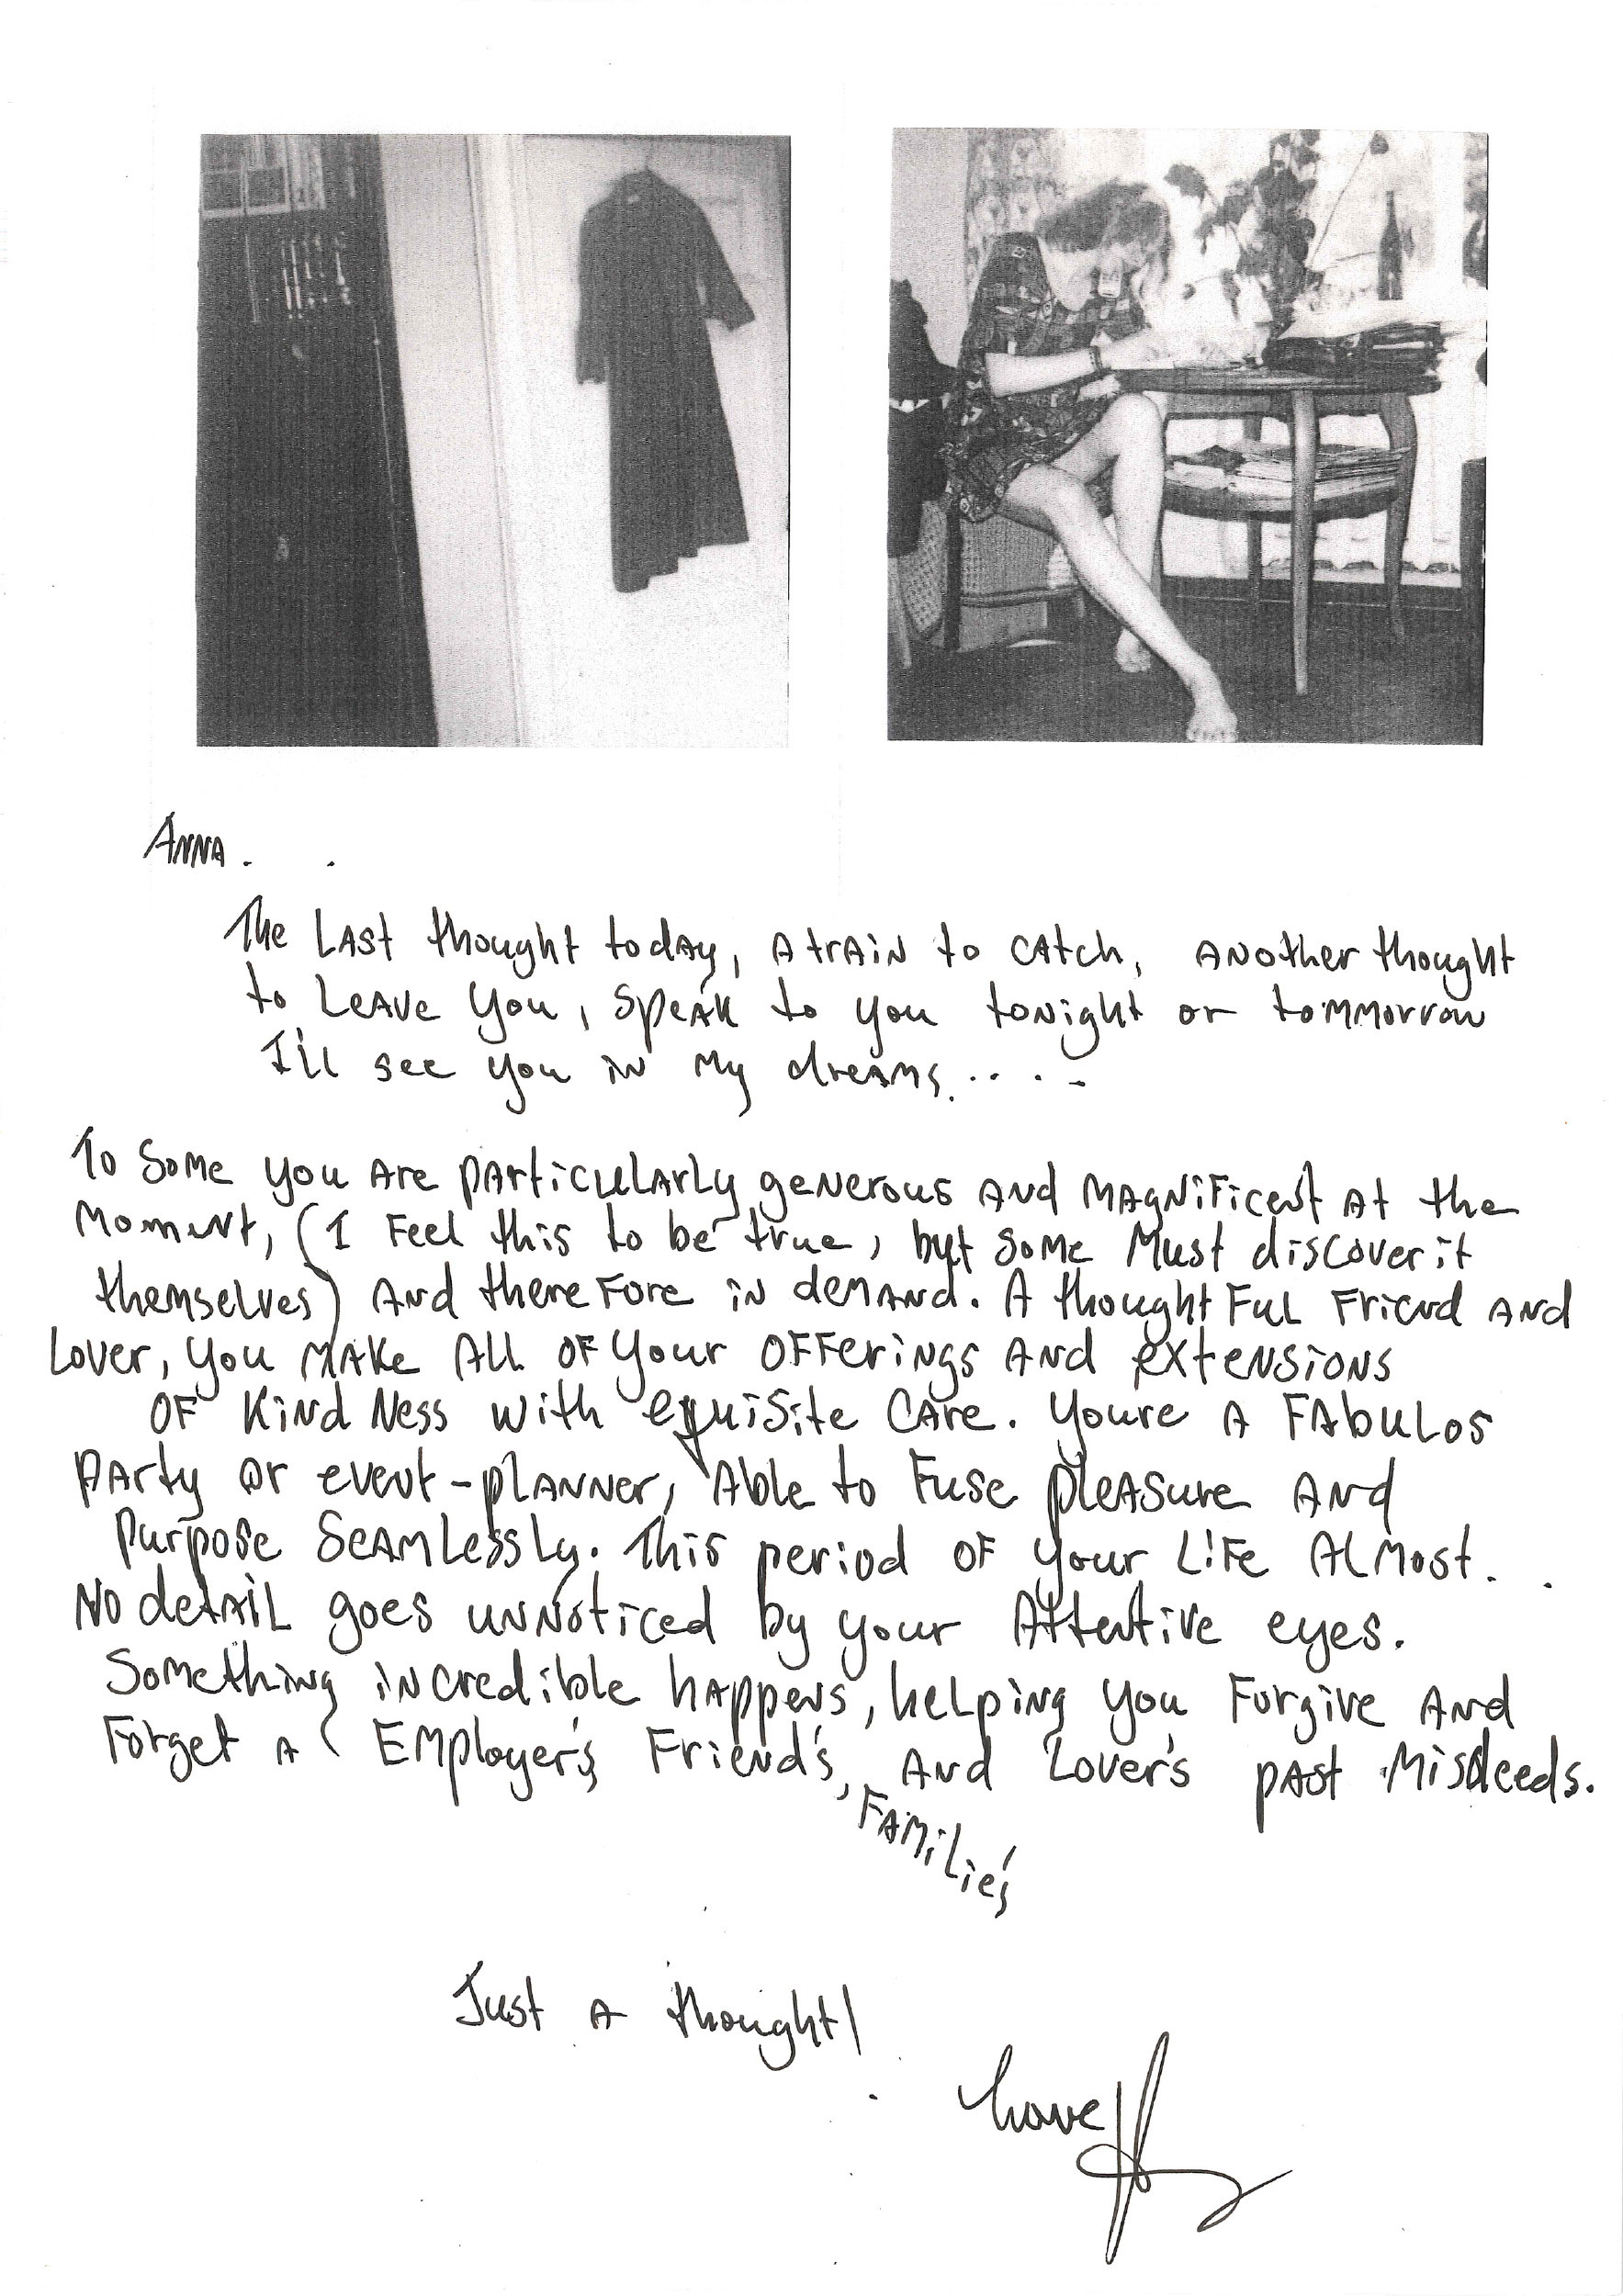 ANNA.
The Last thought today, A train to catch, Another thought
to Leave you, speak to you tonight or tommorrow
I'll see you in my dreams.....
To Some you Are particularly generous and magnificent At the
Moment, (I Feel this to be true, but some Must discover it
themselves) And therefore in demand. A thoughtFul Friend And
Lover, you make All of your offerings And extensions
of Kindness with equisite care. Youre A Fabulos
party or event-planner, Able to Fuse pleasure And
purpose Seamlessly. This period of your Life Almost..
No detail goes unnoticed by your Attentive eyes.
Something incredible happens, helping you Forgive And
Forget A Employer's, Friend's, And Lover's past Misdeeds.
Familie's
Just A thought!
Love